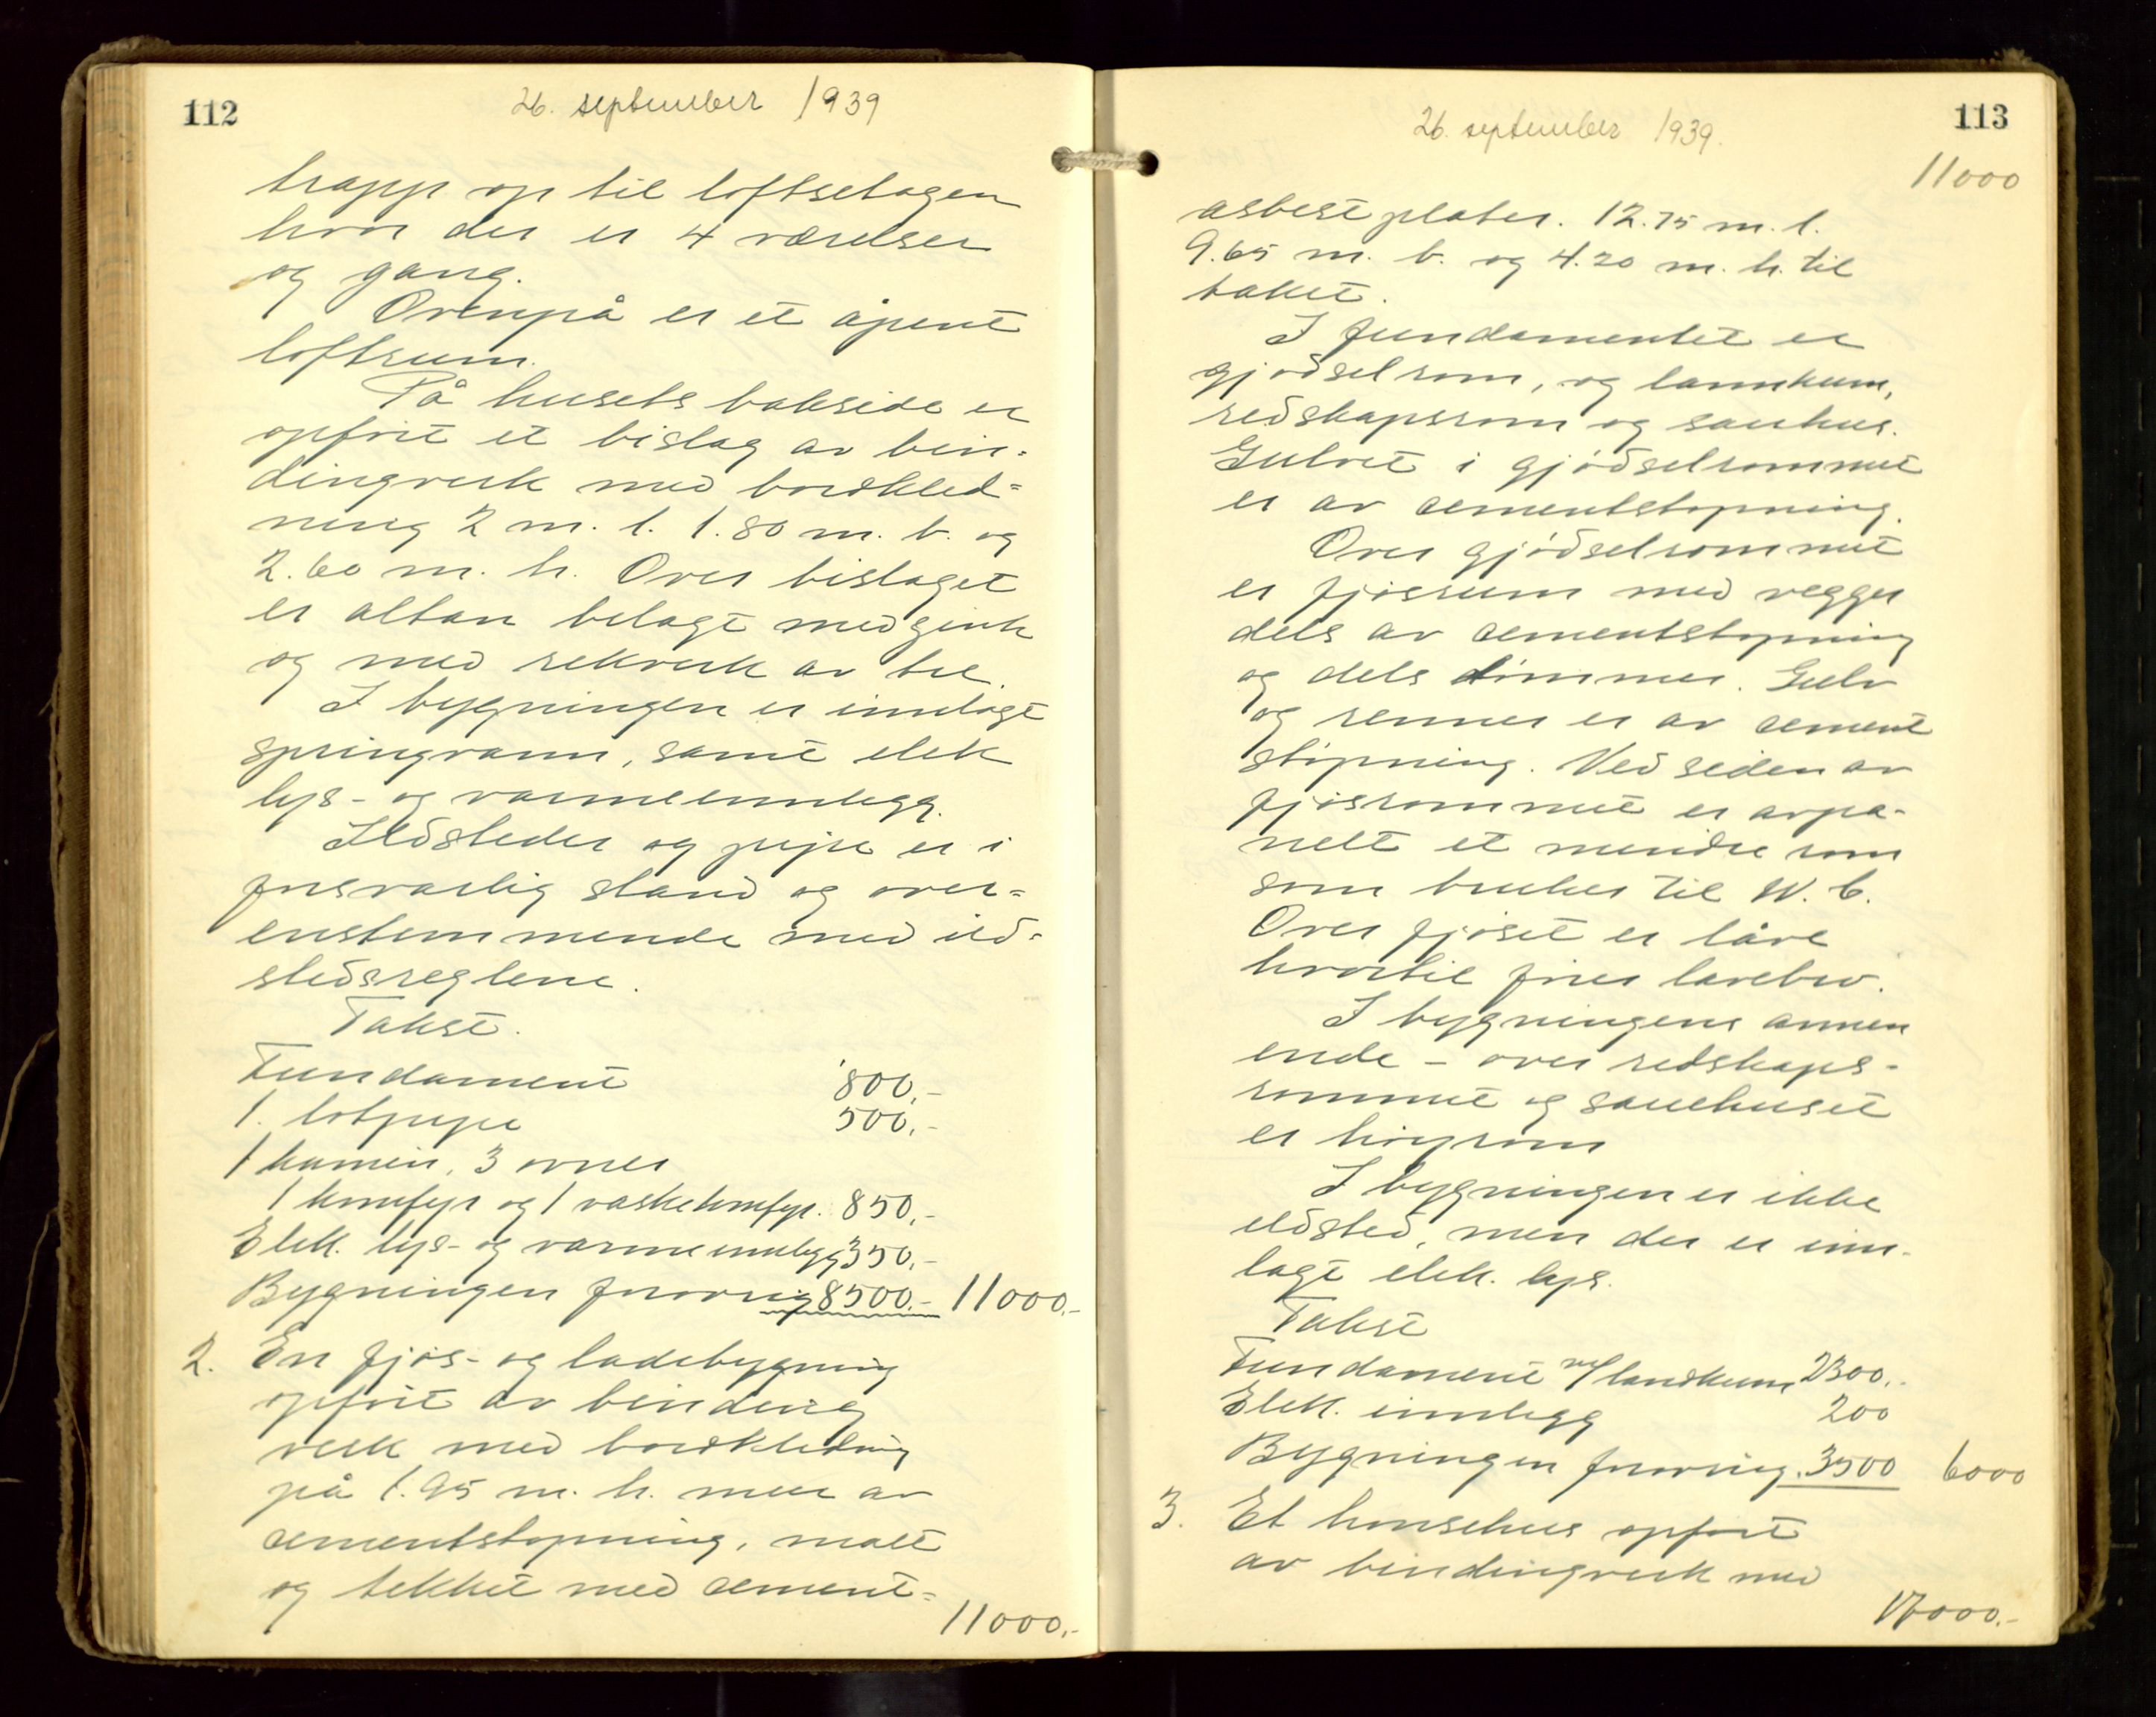 112
26. september 1939
trapp op til loftsetagen
hvor der er 4 værelser
og gang.
Ovenpå er et åpent
loftsrum.
På husets bakside er
opført et bislag av bin=
dingverk med bordkled=
ning 2 m. l. 1.80 m. b. og
2.60 m. h. Over bislaget
er altan belagt med zink
og med rekverk av tre.
I bygningen er innlagt
springvann, samt elek
lys- og varmeinnlegg.
Ildsteder og pipe er i
forsvarlig stand og over=
enstemmende med ild=
stedsreglene.
Takst.
Fundament 800.-
1. lotpipe 500.-
1 kamin, 3 ovner
1 komfyr og 1 vaskekomfyr. 850.-
Elek. lys- og varmeinnlegg 350.-
Bygningen forøvrig 8500.- 11000.-
2. En fjøs- og ladebygning
opført av binding
verk med bordkledning
på 1.95 m. h. mur av
cementstøpning, malt
og tekket med cement=
11000.-
113
26. september 1939.
11000
asbestplater. 12.75 m. l.
9.65 m. b. og 4.20 m. h. til
taket.
I fundamentet er
gjødselrom, og lannkum,
redskapsrom og sauhus.
Gulvet i gjødselrommet
er av cementstøpning.
Over gjødselrommet
er fjøsrum med vegger
dels av cementstøpning
og dels tømmer. Gulv
og renner er av cement
støpning. Ved siden av
fjøsrommet er avpa-
nelt et mindre rom
som brukes til W. C.
Over fjøset er låve
hvortil fører lavebro.
I bygningens annen
ende - over redskaps-
rommet og sauehuset
er høyrom
I bygningen er ikke
ildsted, men der er inn-
lagt elek. lys.
Takst
Fundament m/landkum 2300.-
Elek. innlegg 200
Bygningen forøvrig. 3500 6000
3. Et hønsehus opført
av bindingverk med
17000.-